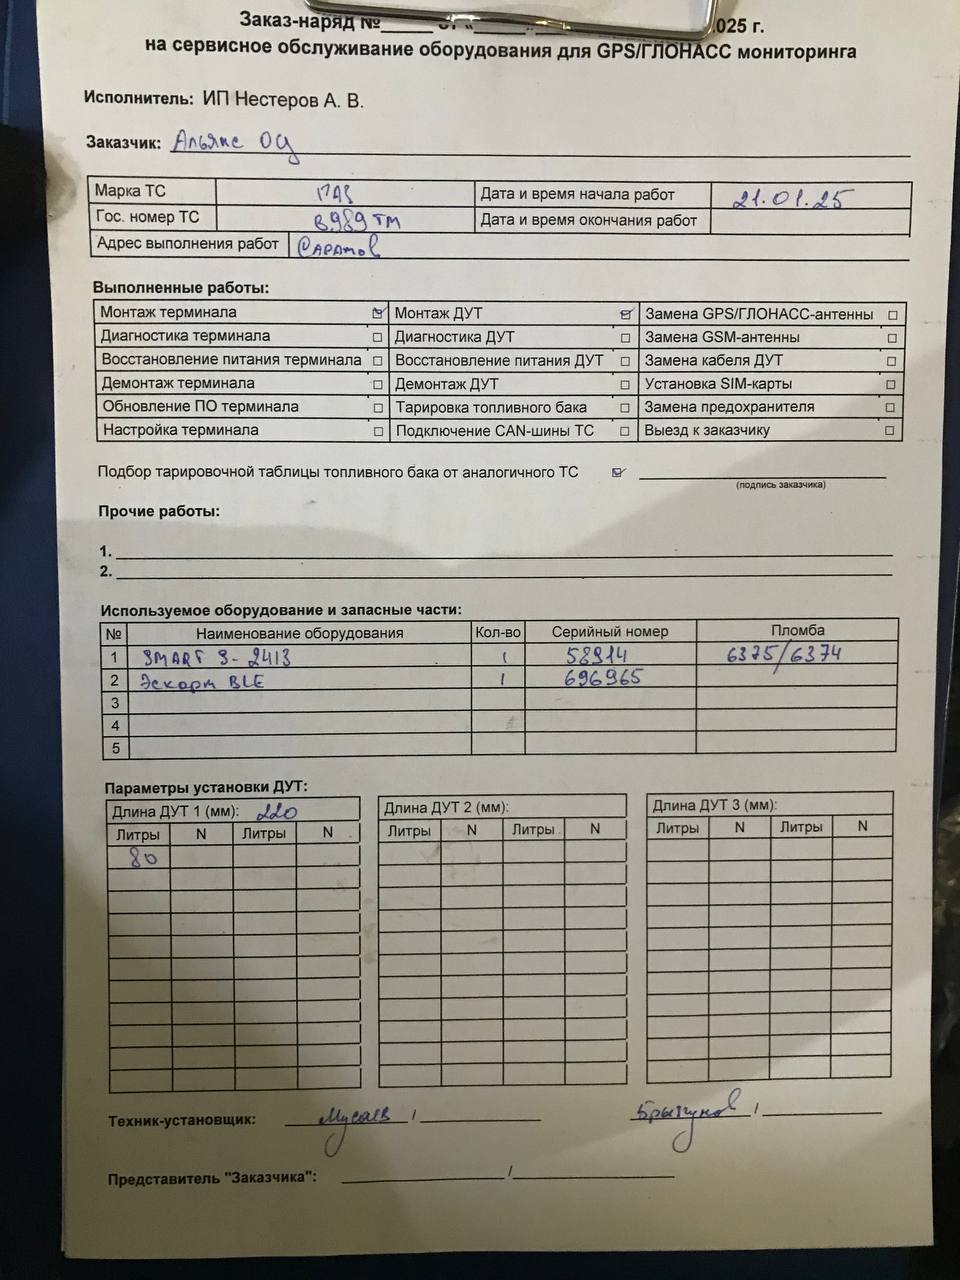 Заказ-наряд №_____ от «_____ _____ 2025 г.
на сервисное обслуживание оборудования для GPS/ГЛОНАСС мониторинга
Исполнитель: ИП Нестеров А. В.
Заказчик: Альянс ОЦ
Марка ТС ПАЗ Дата и время начала работ 21.01.25
Гос. номер ТС В989ТМ Дата и время окончания работ
Адрес выполнения работ Саратов
Выполненные работы:
Монтаж терминала ☑ Монтаж ДУТ ☑ Замена GPS/ГЛОНАСС-антенны ☐
Диагностика терминала ☐ Диагностика ДУТ ☐ Замена GSM-антенны ☐
Восстановление питания терминала ☐ Восстановление питания ДУТ ☐ Замена кабеля ДУТ ☐
Демонтаж терминала ☐ Демонтаж ДУТ ☐ Установка SIM-карты ☐
Обновление ПО терминала ☐ Тарировка топливного бака ☐ Замена предохранителя ☐
Настройка терминала ☐ Подключение CAN-шины ТС ☐ Выезд к заказчику ☐
Подбор тарировочной таблицы топливного бака от аналогичного ТС ☑
(подпись заказчика)
Прочие работы:
1.
2.
Используемое оборудование и запасные части:
№ Наименование оборудования Кол-во Серийный номер Пломба
1 SMART S-2413 1 58914 6375/6374
2 Эскорт BLE 1 696965
3
4
5
Параметры установки ДУТ:
Длина ДУТ 1 (мм): 220 Длина ДУТ 2 (мм): Длина ДУТ 3 (мм):
Литры N Литры N Литры N Литры N Литры N Литры N
80
Техник-установщик: Мусаев / Брызгунов /
Представитель "Заказчика": /